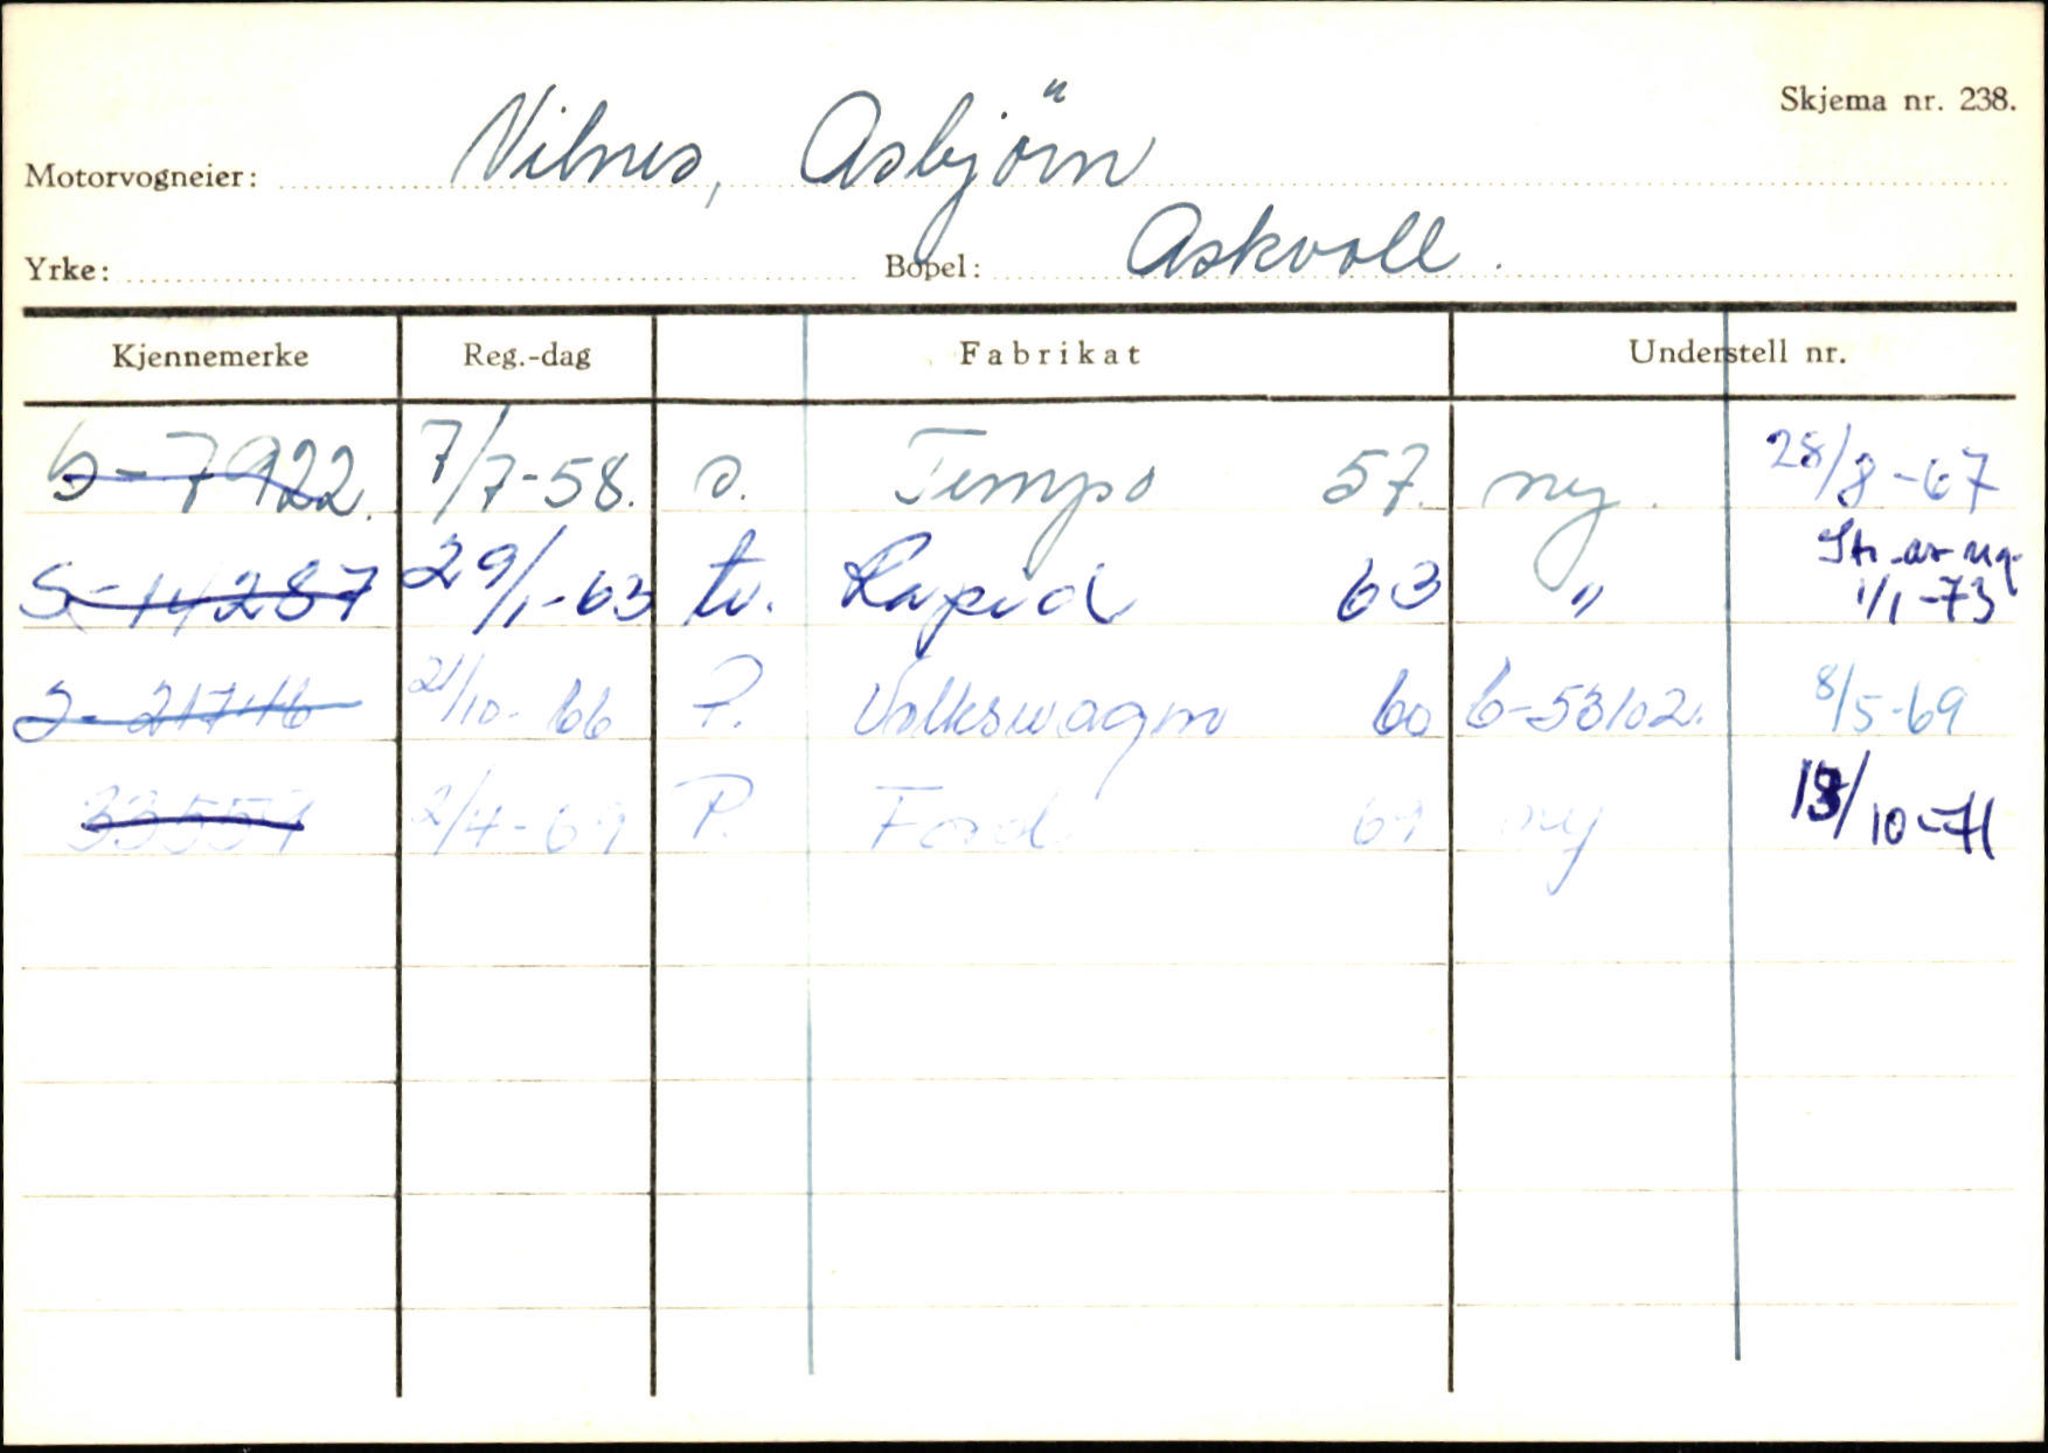 Skjema nr. 238.
Motorvogneier: Vilnes, Asbjörn
Yrke: Bopel: Askvoll.
Kjennemerke Reg.-dag Fabrikat Understell nr.
S-7922. 7/7-58. s. Tempo 57. ny. 28/8-67
S-14287 29/1-63 tv. Rapid 63 " Str. av reg. 1/1-73
S-21746 21/10-66 P. Volkswagen 60 6-53102. 8/5-69
33557 2/4-69 P. Ford 69 ny 13/10-71